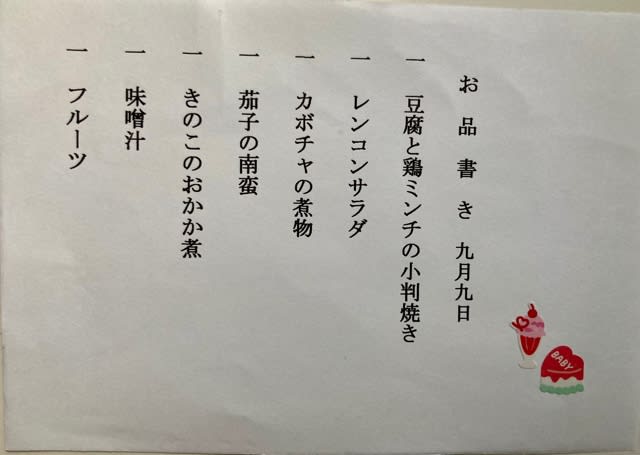 お品書き 九月九日
一 豆腐と鶏ミンチの小判焼き
一 レンコンサラダ
一 カボチャの煮物
一 茄子の南蛮
一 きのこのおかか煮
一 味噌汁
一 フルーツ
BABY